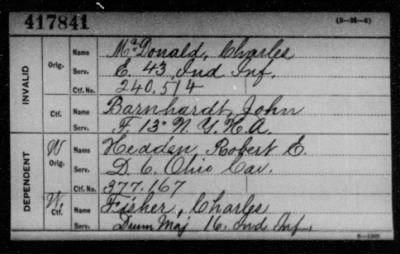 417841
(3-96-6)
INVALID
Orig. Name McDonald, Charles
Serv. E. 43, Ind Inf.
Ctf. No. 240,514
Ctf. Name Barnhardt, John
Serv. F, 13" N. Y. H. A.
DEPENDENT
W Orig. Name Hedden, Robert E.
Serv. D. 6, Ohio Cav.
Ctf. No. 377.167
W. Ctf. Name Fisher, Charles
Serv. Drum Maj 16. Ind Inf.